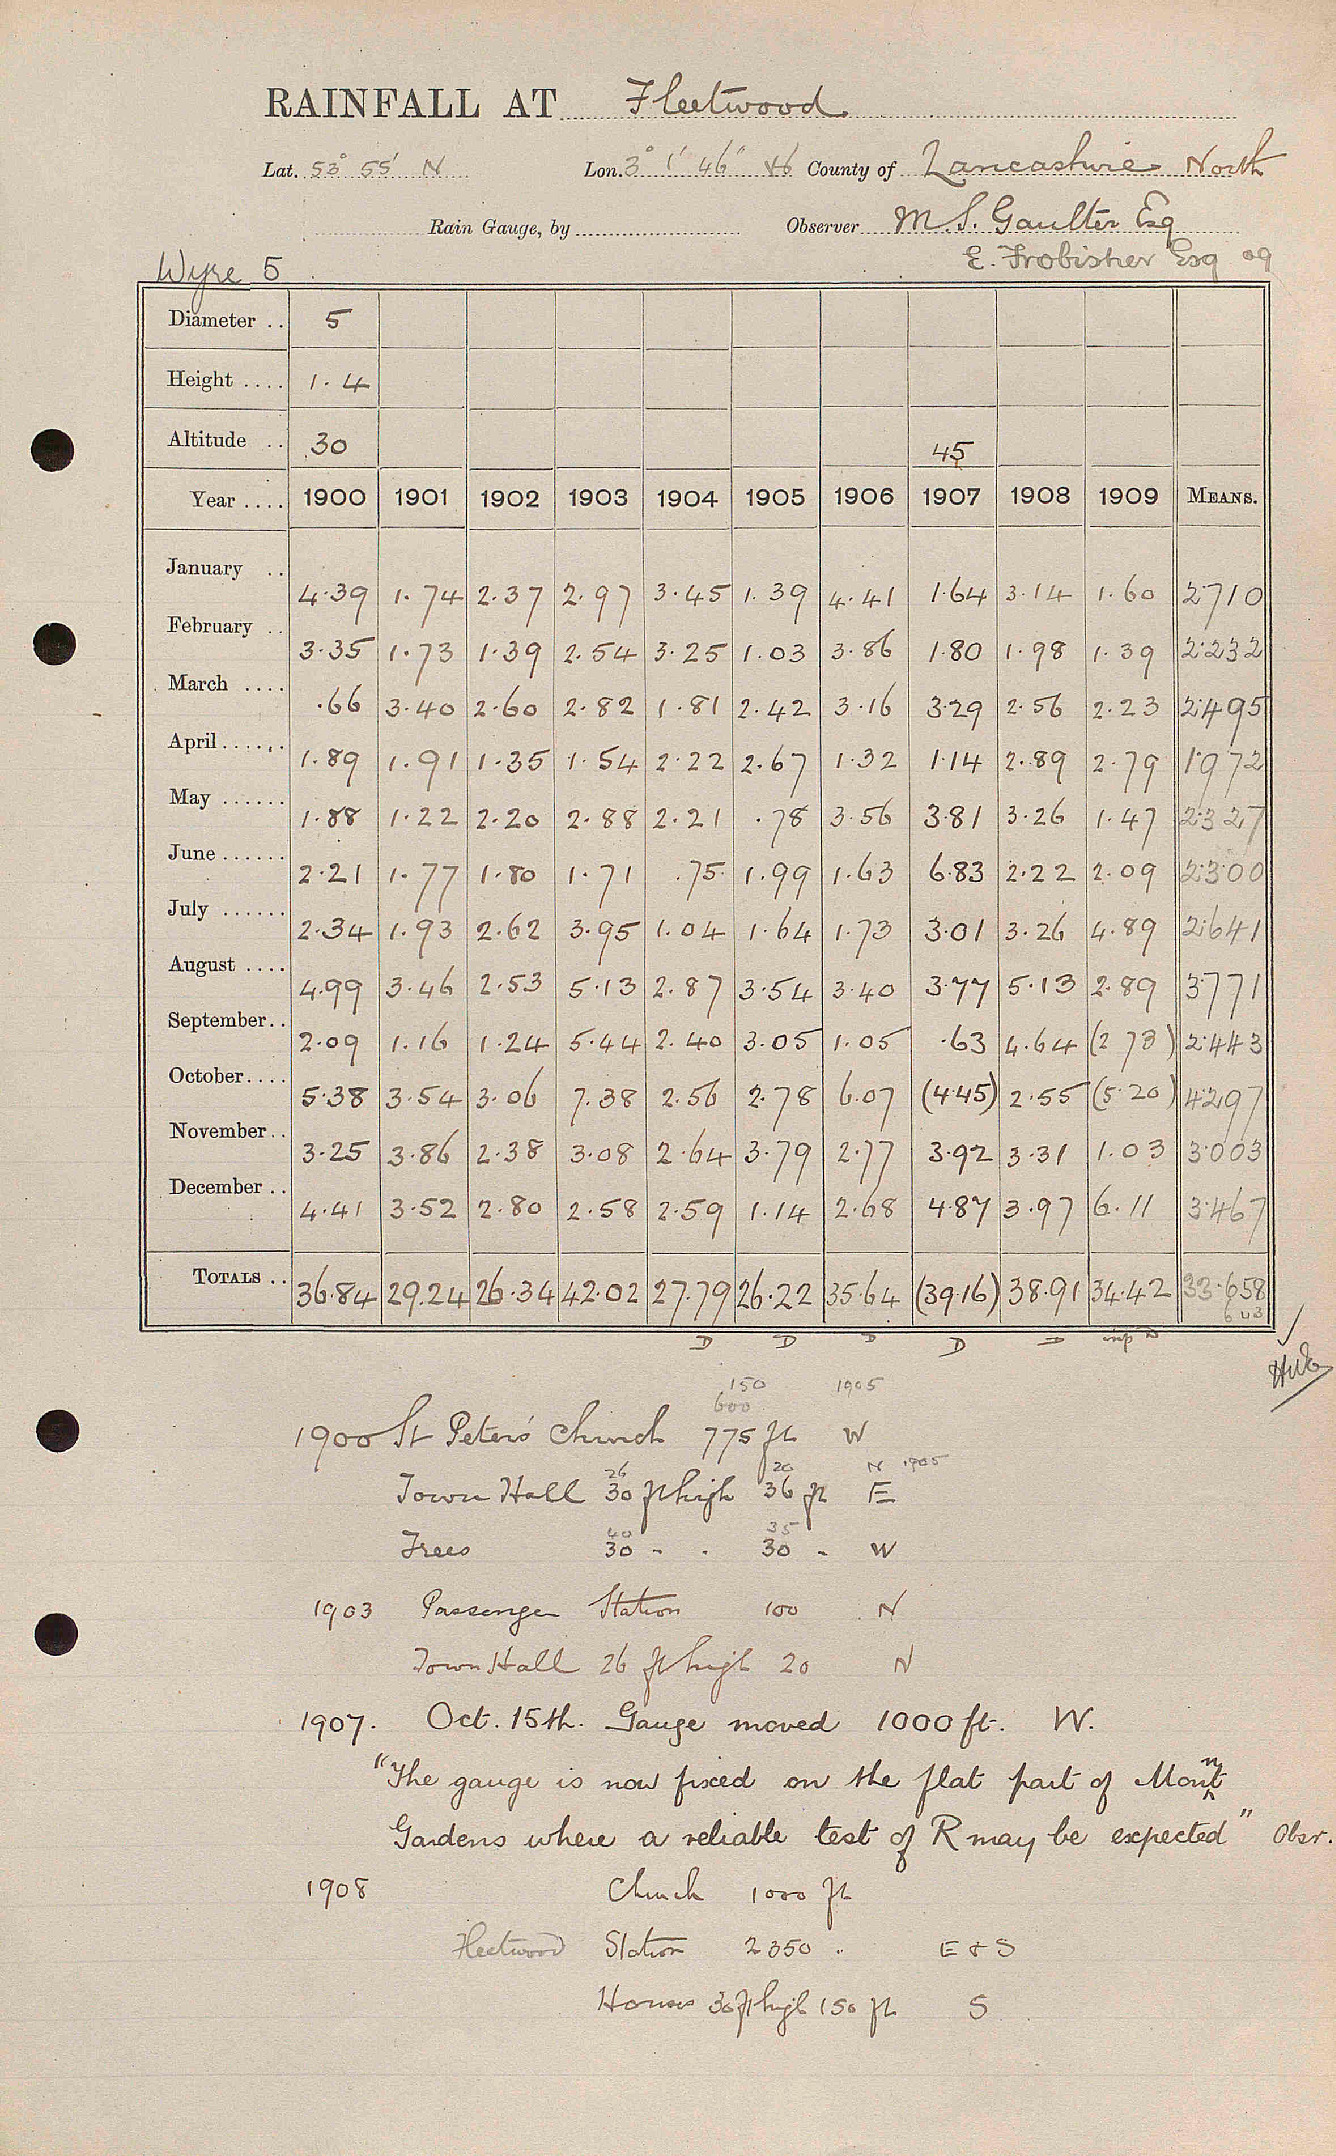 RAINFALL AT Fleetwood
Lat. 53° 55' N Lon. 3° 1' 46" W County of Lancashire North
Rain Gauge, by Observer M. S. Gaulter Esq
E. Frobisher Esq 09
Wyre 5
Diameter .. 5
Height .... 1.4
Altitude .. 30 45
Year .... 1900 1901 1902 1903 1904 1905 1906 1907 1908 1909 MEANS.
January .. 4.39 1.74 2.37 2.97 3.45 1.39 4.41 1.64 3.14 1.60 2.710
February .. 3.35 1.73 1.39 2.54 3.25 1.03 3.86 1.80 1.98 1.39 2.232
March .... .66 3.40 2.60 2.82 1.81 2.42 3.16 3.29 2.56 2.23 2.495
April ...... 1.89 1.91 1.35 1.54 2.22 2.67 1.32 1.14 2.89 2.79 1.972
May ...... 1.88 1.22 2.20 2.88 2.21 .78 3.56 3.81 3.26 1.47 2.327
June ...... 2.21 1.77 1.80 1.71 .75 1.99 1.63 6.83 2.22 2.09 2.300
July ...... 2.34 1.93 2.62 3.95 1.04 1.64 1.73 3.01 3.26 4.89 2.641
August .... 4.99 3.46 2.53 5.13 2.87 3.54 3.40 3.77 5.13 2.89 3.771
September .. 2.09 1.16 1.24 5.44 2.40 3.05 1.05 .63 4.64 (2 73) 2.443
October .... 5.38 3.54 3.06 7.38 2.56 2.78 6.07 (4.45) 2.55 (5.20) 4.297
November .. 3.25 3.86 2.38 3.08 2.64 3.79 2.77 3.92 3.31 1.03 3.003
December .. 4.41 3.52 2.80 2.58 2.59 1.14 2.68 4.87 3.97 6.11 3.467
TOTALS .. 36.84 29.24 26.34 42.02 27.79 26.22 35.64 (39.16) 38.91 34.42 33.658
D D D D D
150 1905
600
1900 St Peter's Church 775 ft W
26 20 N 1905
Town Hall 30 ft high 36 ft E
40 35
Trees 30 - . 30 - W
1903 Passenger Station 100 N
Town Hall 26 ft high 20 N
1907. Oct. 15th. Gauge moved 1000 ft. W.
"The gauge is now fixed on the flat part of Mount
Gardens where a reliable test of R may be expected" Obsr.
1908 Church 1000 ft
Fleetwood Station 2350 .. E & S
Houses 30 ft high 150 ft S